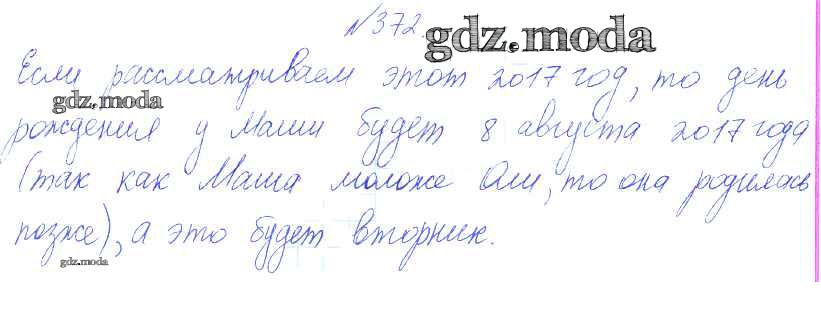 №372.
gdz.moda
Если рассматриваем этот 2017 год, то день
gdz.moda
рождения у Маши будет 8 августа 2017 года
(так как Маша моложе Оли, то она родилась
позже), а это будет вторник.
gdz.moda